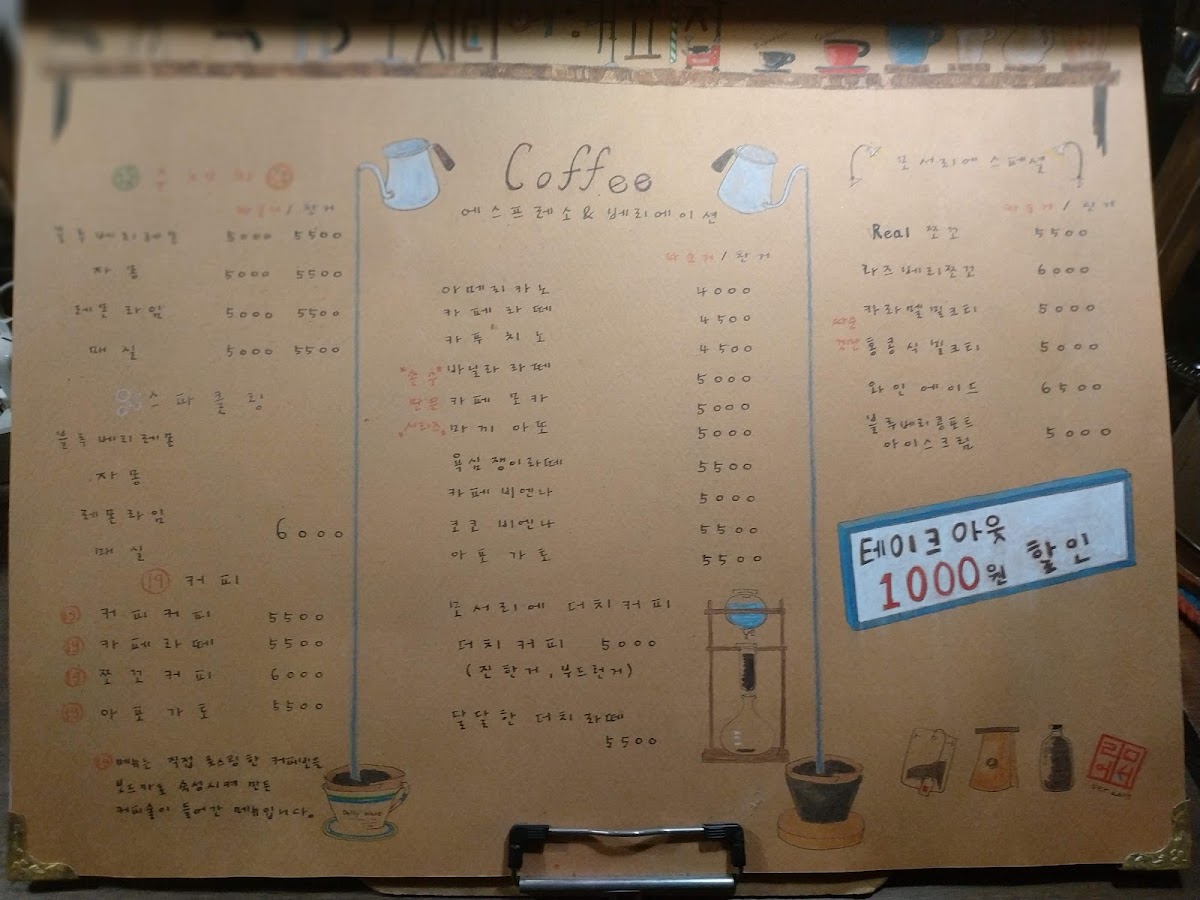 모서리에 커피
수제차
따순거 / 찬거
블루베리레몬 5000 5500
자몽 5000 5500
레몬라임 5000 5500
매실 5000 5500
스파클링
블루베리레몬
자몽
레몬라임 6000
매실
19 커피
19 커피커피 5500
19 카페라떼 5500
19 쪼꼬커피 6000
19 아포가토 5500
19 메뉴는 직접 로스팅한 커피빈을
보드카로 숙성시켜 만든
커피술이 들어간 메뉴입니다.
Coffee
에스프레소&베리에이션
따순거 / 찬거
아메리카노 4000
카페라떼 4500
카푸치노 4500
바닐라라떼 5000
"손수"
만든
시리즈
카페모카 5000
마끼아또 5000
욕심쟁이라떼 5500
카페비엔나 5000
코코비엔나 5500
아포가토 5500
모서리에 더치커피
더치커피 5000
(진한거, 부드런거)
달달한 더치라떼
5500
모서리에스페셜
따순거 / 찬거
Real 쪼꼬 5500
라즈베리쪼꼬 6000
카라멜밀크티 5000
홍콩식밀크티 5000
와인에이드 6500
블루베리콩포트
아이스크림 5000
테이크아웃
1000원 할인